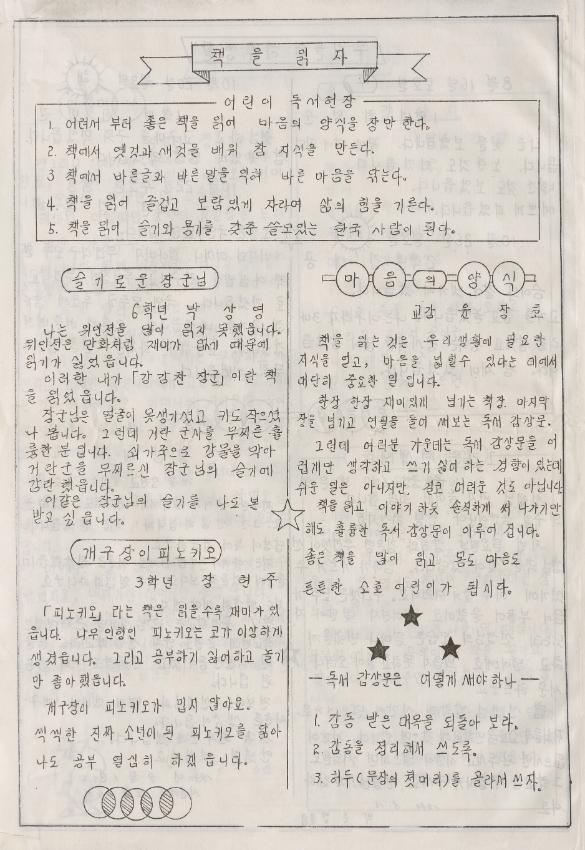 책 을 읽 자
어린이 독서헌장
1. 어려서 부터 좋은 책을 읽어 마음의 양식을 장만 한다.
2. 책에서 옛것과 새것을 배워 참 지식을 만든다.
3 책에서 바른글과 바른 말을 익혀 바른 마음을 닦는다.
4. 책을 읽어 즐겁고 보람있게 자라며 삶의 힘을 기른다.
5. 책을 읽어 슬기와 용기를 갖춘 쓸모있는 한국 사람이 된다.
슬기로운 장군님
6학년 박 상 영
나는 위인전을 많이 읽지 못했읍니다.
위인전은 만화처럼 재미가 없기 때문에
읽기가 싫었읍니다.
이러한 내가 「강감찬 장군」이란 책
을 읽었읍니다.
장군님은 얼굴이 못생기셨고 키도 작으셨
나 봅니다. 그런데 거란 군사를 무찌른 훌
륭한 분 입니다. 쇠가죽으로 강물을 막아
거란군을 무찌르신 장군님의 슬기에
감탄했읍니다.
이같은 장군님의 슬기를 나도 본
받고 싶읍니다.
개구장이 피노키오
3학년 장 현 주
「피노키오」라는 책은 읽을수록 재미가 있
읍니다. 나무 인형인 피노키오는 코가 이상하게
생겼읍니다. 그리고 공부하기 싫어하고 놀기
만 좋아했읍니다.
개구장이 피노키오가 밉지 않아요.
씩씩한 진짜 소년이 된 피노키오를 닮아
나도 공부 열심히 하겠읍니다.
마 음 의 양 식
교감 윤 장 호
책을 읽는 것은 우리 생활에 필요한
지식을 얻고, 마음을 넓힐 수 있다는 데에서
대단히 중요한 일 입니다.
한장 한장 재미있게 넘기는 책장. 마지막
장을 넘기고 연필을 들어 써보는 독서 감상문.
그런데 여러분 가운데는 독서 감상문을 어
렵게만 생각하고 쓰기 싫어 하는 경향이 있는데
쉬운 일은 아니지만, 결코 어려운 것도 아닙니다
책을 읽고 이야기 하듯 솔직하게 써 나가기만
해도 훌륭한 독서 감상문이 이루어 집니다.
좋은 책을 많이 읽고 몸도 마음도
튼튼한 소호 어린이가 됩시다.
— 독서 감상문은 어떻게 써야 하나 —
1. 감동 받은 대목을 되돌아 보라.
2. 감동을 정리해서 쓰도록.
3. 허두(문장의 첫머리)를 골라서 쓰자.